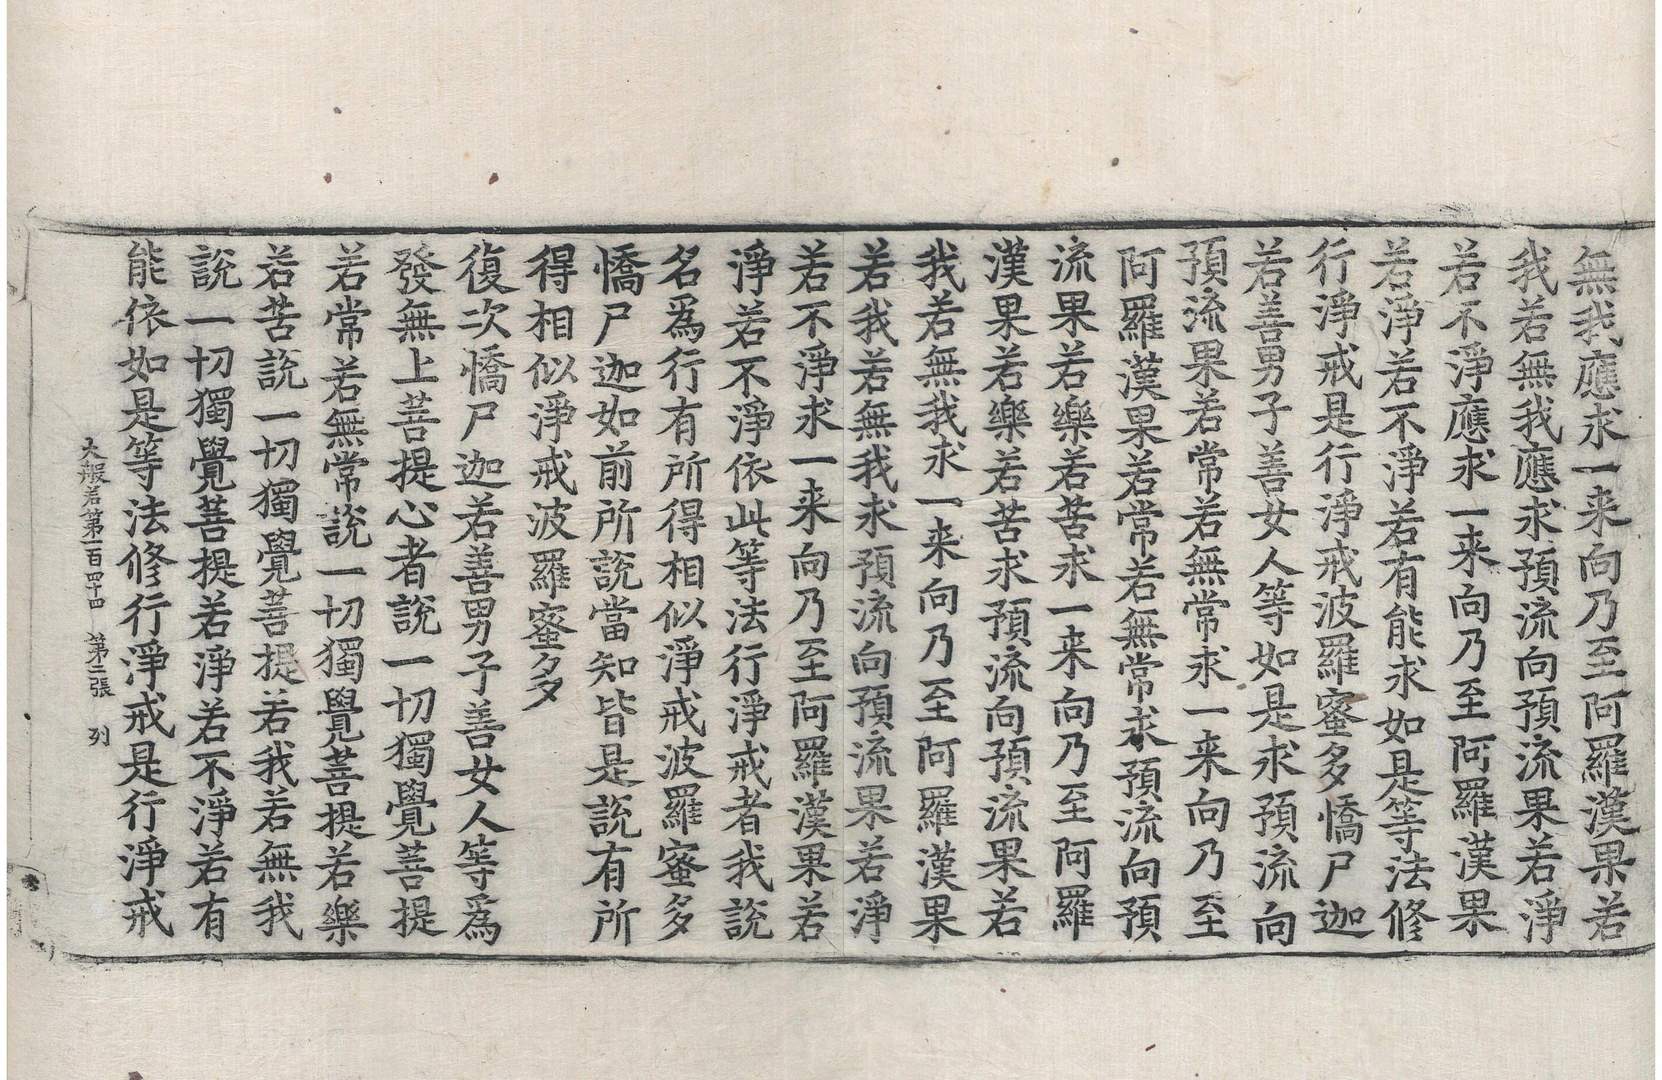 無我應求一来向乃至阿羅漢果若
我若無我應求預流向預流果若淨
若不淨應求一来向乃至阿羅漢果
若淨若不淨若有能求如是等法修
行淨戒是行淨戒波羅蜜多憍尸迦
若善男子善女人等如是求預流向
預流果若常若無常求一来向乃至
阿羅漢果若常若無常求預流向預
流果若樂若苦求一来向乃至阿羅
漢果若樂若苦求預流向預流果若
我若無我求一来向乃至阿羅漢果
若我若無我求預流向預流果若淨
若不淨求一来向乃至阿羅漢果若
淨若不淨依此等法行淨戒者我說
名爲行有所得相似淨戒波羅蜜多
憍尸迦如前所說當知皆是說有所
得相似淨戒波羅蜜多
復次憍尸迦若善男子善女人等爲
發無上菩提心者說一切獨覺菩提
若常若無常說一切獨覺菩提若樂
若苦說一切獨覺菩提若我若無我
說一切獨覺菩提若淨若不淨若有
能依如是等法修行淨戒是行淨戒
大般若第一百四十四 第二張 列